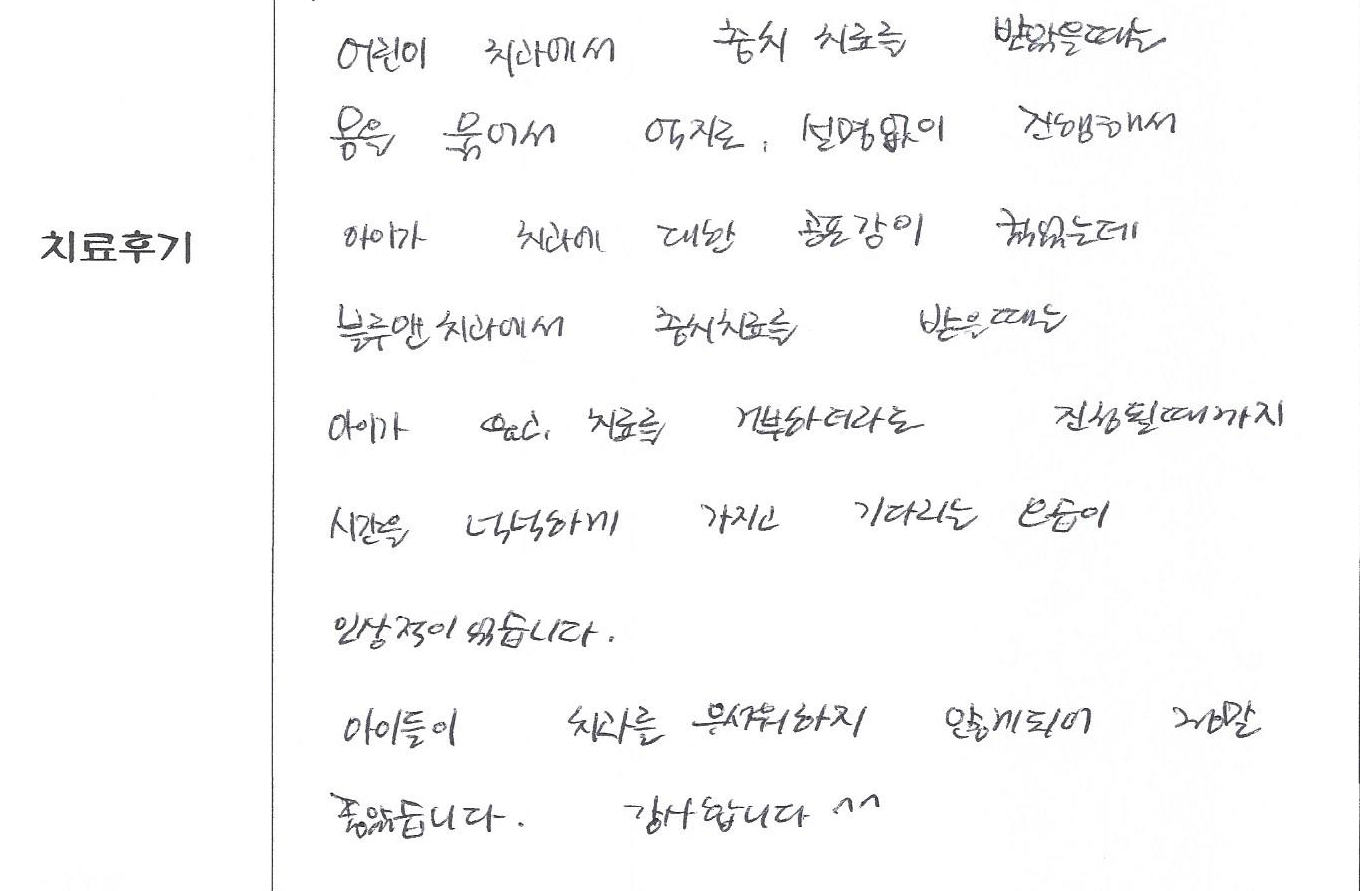 어린이 치과에서 충치 치료를 받았을때는
몸을 묶어서 억지로, 설명없이 진행해서
치료후기
아이가 치과에 대한 공포감이 컸었는데
블루맨치과에서 충치치료를 받을때는
아이가 치료를 거부하더라도 진정될때까지
시간을 넉넉하게 가지고 기다리는 모습이
인상적이였습니다.
아이들이 치과를 무서워하지 않게되어 정말
좋았습니다. 감사합니다 ^^